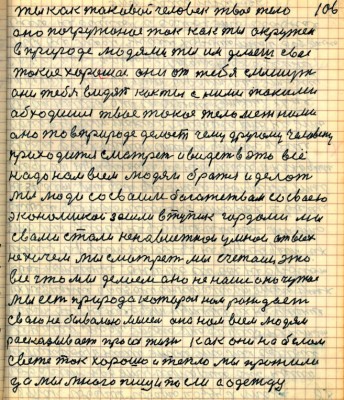 ты как таковой человек твое тело 106
оно погружоное так как ты окружен
в природе людями ты им делаеш свое
такое хорошое они от тебя слышут
они тебя видят как ты с ними такоми
обходиш твое такое тело меж ними
оно это в природе делает чему другому человеку
приходится смотреть и видеть в это всё
надо нам всем людям братся и делат
мы люди со своим богатством со своею
экономикой зошли в тупик гордоми мы
с вами стали ненавистной умное от всех
не хочем мы смотрет мы считаем это
все что мы делаем оно не наше оно чужое
мы ест природа которая нам рождает
свое не бывалою мысл она нам всем людям
расказывает про ста жизн как они на белом
свете так хорошо и тепло мы прожили
за мы много пищи после а одежду